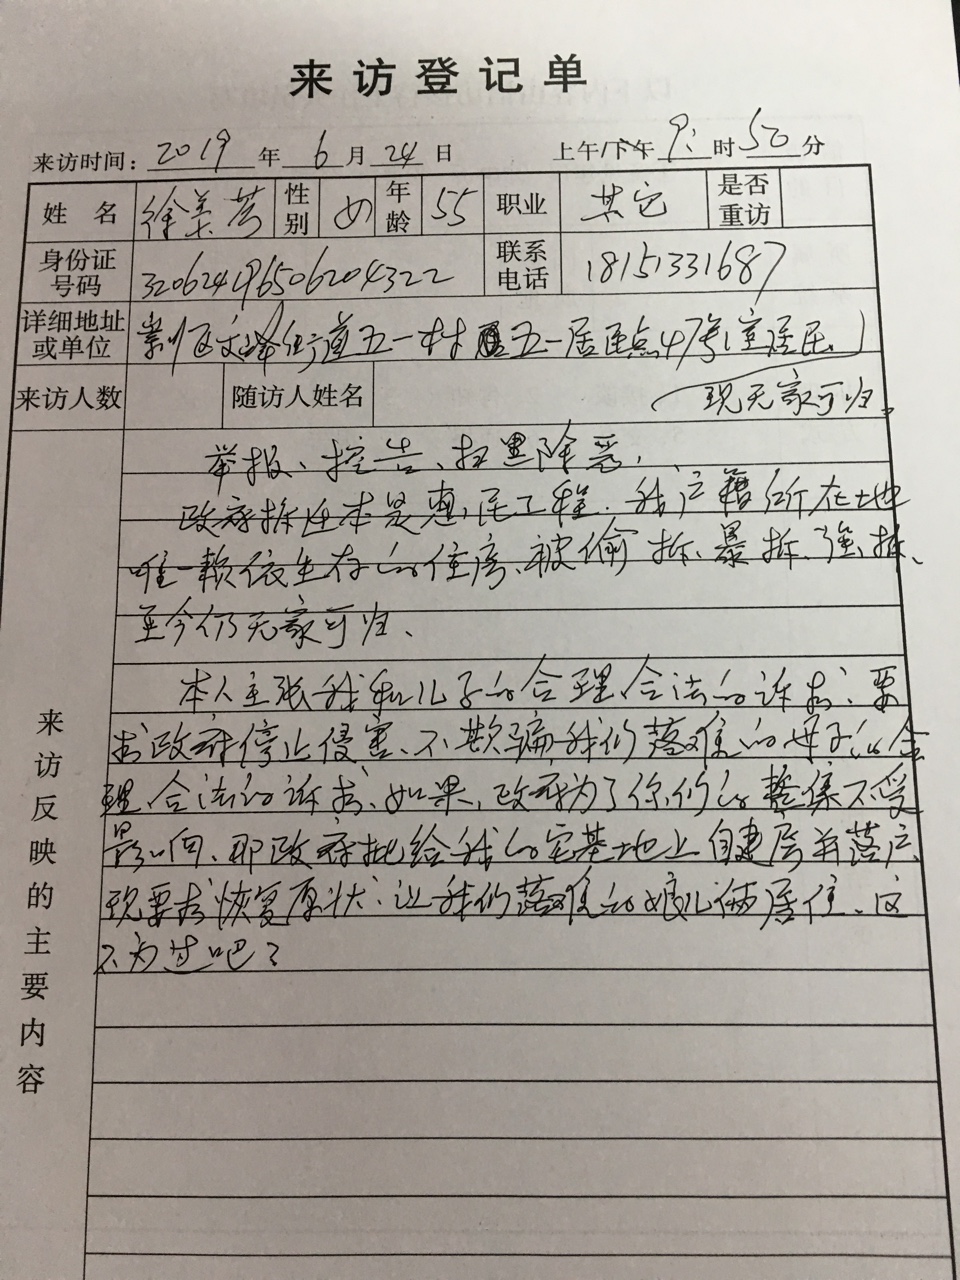 来访登记单
来访时间：2019年6月24日 上午/下午9:时50分
姓名 徐美芳 性别 女 年龄 55 职业 其它 是否重访
身份证号码 320624196506204322 联系电话 18151331687
详细地址或单位 崇川区文峰街道五一村五一居民点47号室居民
来访人数 随访人姓名 现无家可归。
来访反映的主要内容
举报、控告、扫黑除恶，
政府拆迁本是惠民工程．我户籍所在地
唯一赖依生存的住房、被偷拆、暴拆、强拆、
至今仍无家可归、
本人主张我和儿子的合理合法的诉求、要
求政府停止侵害、不欺骗我们落难的母子的合
理合法的诉求、如果、政府为了你们的整体不受
影响、那政府批给我的宅基地上自建房并落户、
现要求恢复原状、让我们落难的娘儿俩居住、这
不为过吧？